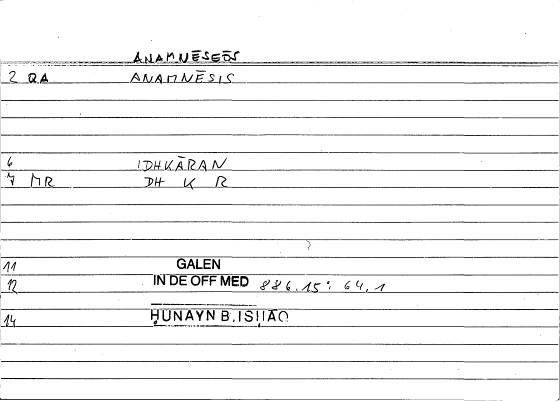 ANAMNĒSEŌS
2 QA ANAMNĒSIS
6 IDHKĀRAN
7 MR DH K R
11 GALEN
12 IN DE OFF MED 886.15: 64.1
14 ḤUNAYN B.ISḤĀQ